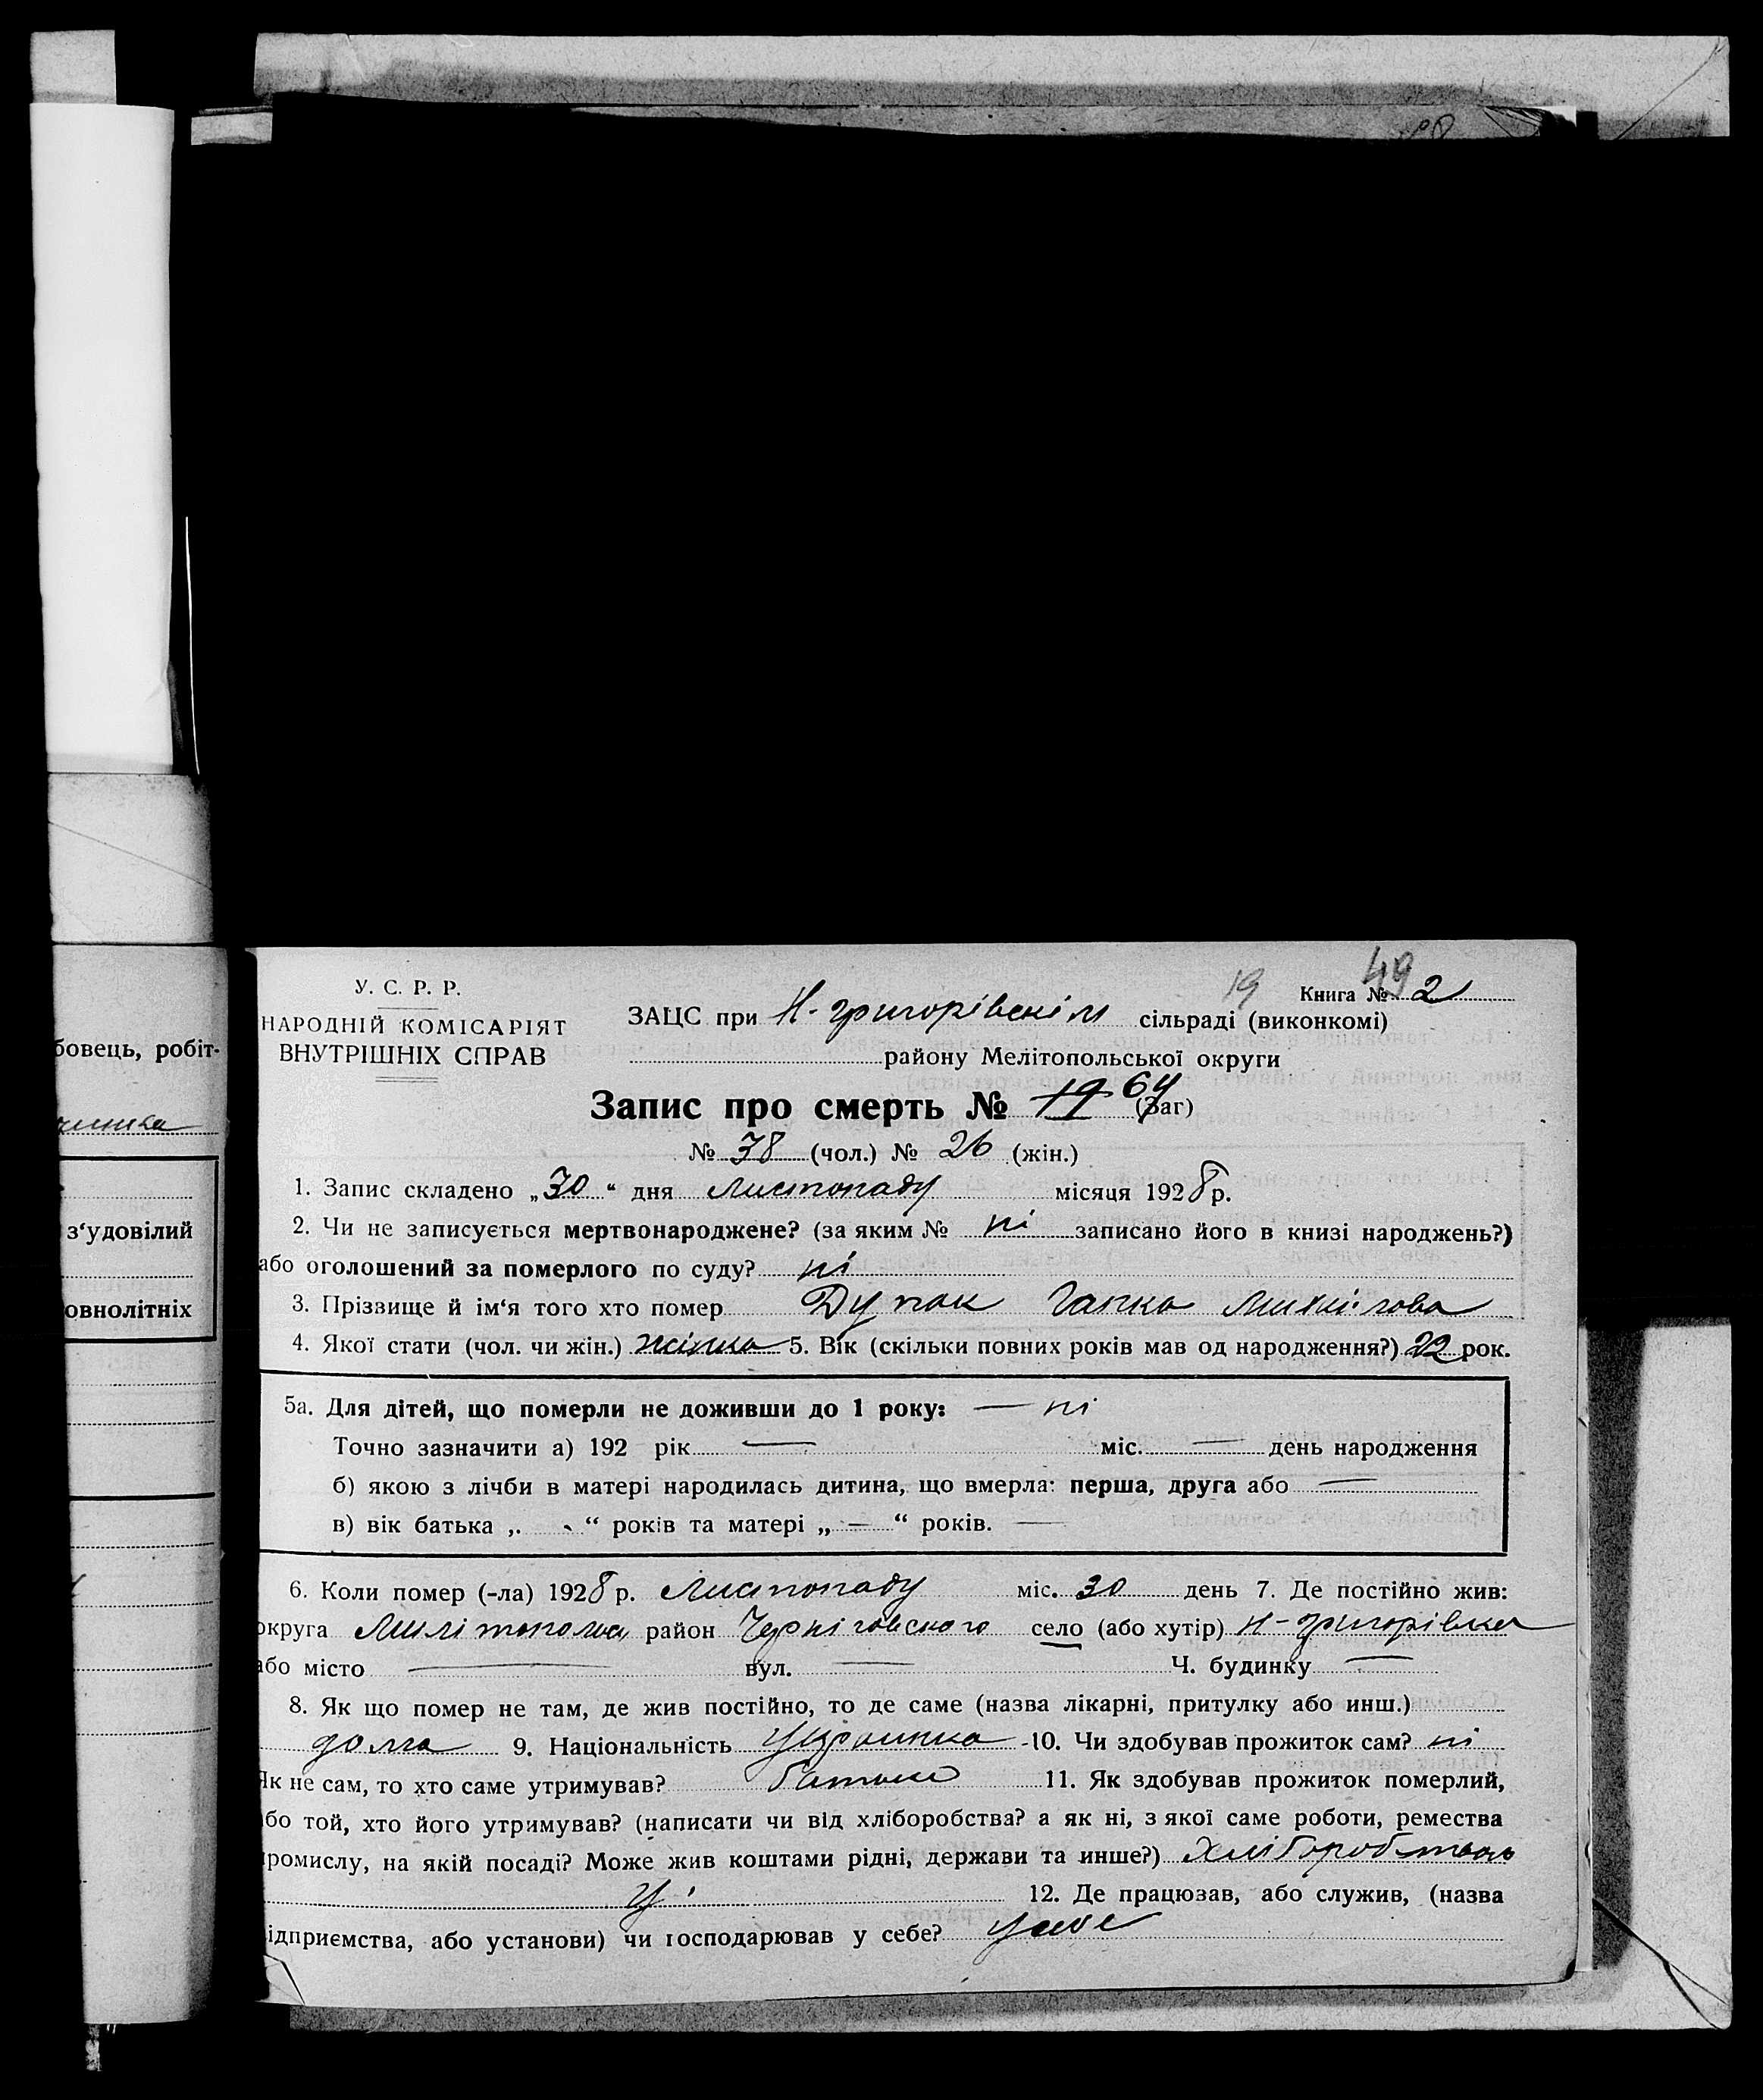 бовець, робіт-
з‘удовілий
овнолітніх
У. С. Р. Р.
НАРОДНІЙ КОМІСАРІЯТ
ВНУТРІШНІХ СПРАВ
19 49
Книга № 2
ЗАЦС при Н-григорівскім сільраді (виконкомі)
району Мелітопольської округи
Запис про смерть № 19 64 (Заг)
№ 38 (чол.) № 26 (жін.)
1. Запис складено „30“ дня Листопаду місяця 1928 р.
2. Чи не записується мертвонароджене? (за яким № ні записано його в книзі народжень?)
або оголошений за померлого по суду? ні
3. Прізвище й ім‘я того хто помер Дупак Гапка
4. Якої стати (чол. чи жін.) жінка 5. Вік (скільки повних років мав од народження?) 22 рок.
5а. Для дітей, що померли не доживши до 1 року: — ні
Точно зазначити а) 192 рік — міс. — день народження
б) якою з лічби в матері народилась дитина, що вмерла: перша, друга або —
в) вік батька „ “ років та матері „ — “ років. —
6. Коли помер (-ла) 1928 р. Листопаду міс. 30 день 7. Де постійно жив:
округа район Черніговского село (або хутір) Н-григорівка
або місто — вул. — Ч. будинку —
8. Як що помер не там, де жив постійно, то де саме (назва лікарні, притулку або инш.)
дома 9. Національність Українка 10. Чи здобував прожиток сам? ні
Як не сам, то хто саме утримував? батько 11. Як здобував прожиток померлий,
або той, хто його утримував? (написати чи від хліборобства? а як ні, з якої саме роботи, ремества
промислу, на якій посаді? Може жив коштами рідні, держави та инше?) Хліборобством
12. Де працював, або служив, (назва
підприємства, або установи) чи господарював у себе? у себе